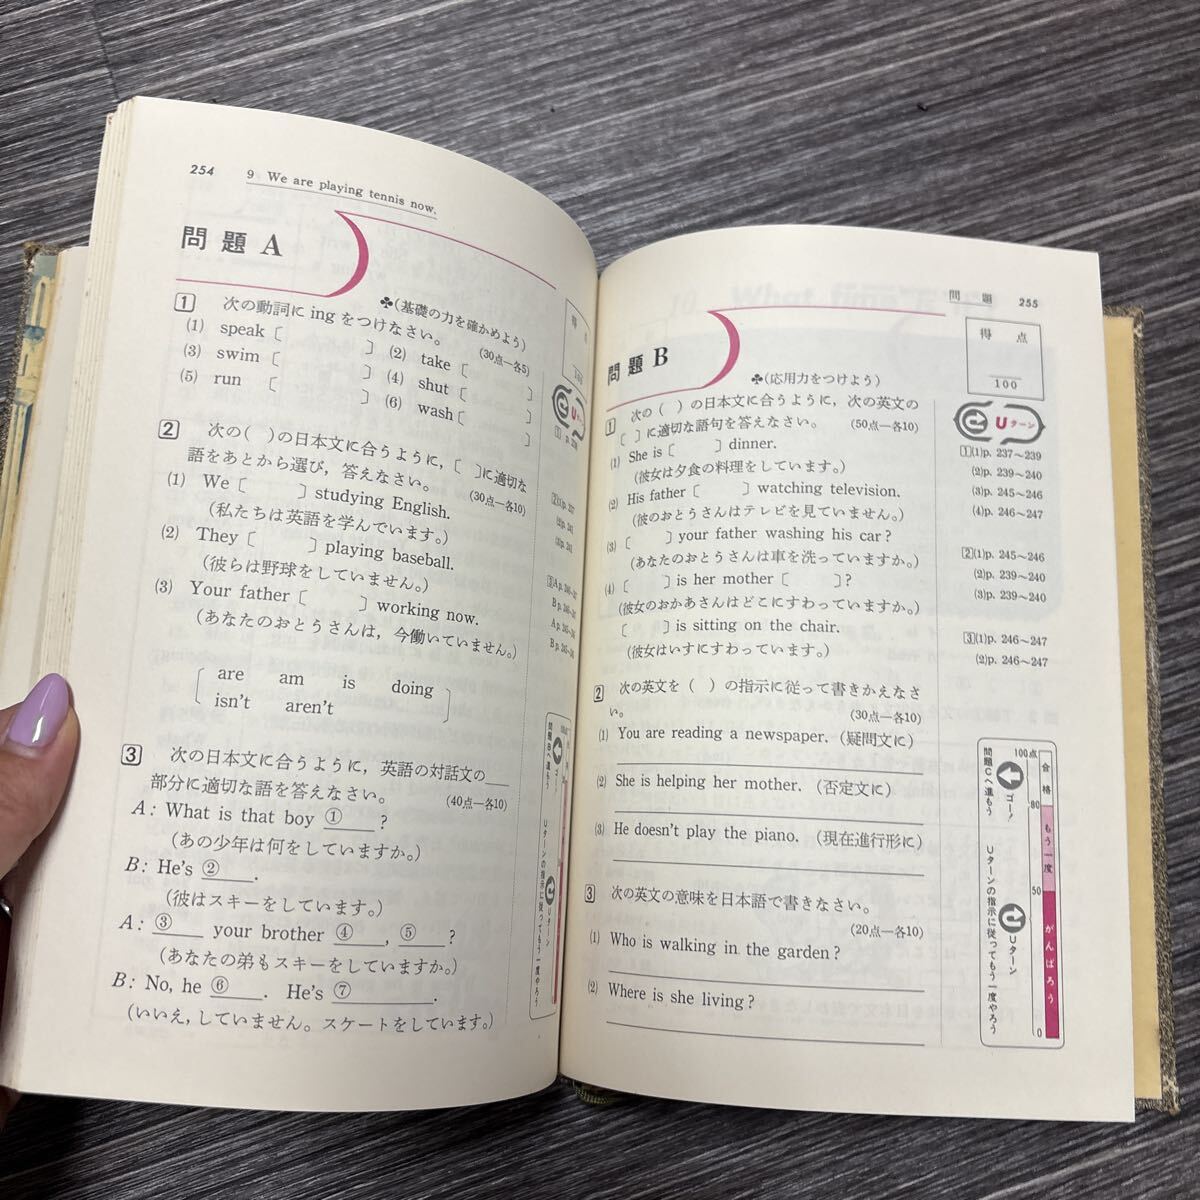 254
9 We are playing tennis now.
問題 A
♣(基礎の力を確かめよう)
1 次の動詞に ing をつけなさい。
(30点—各5)
(1) speak [ ] (2) take [ ]
(3) swim [ ] (4) shut [ ]
(5) run [ ] (6) wash [ ]
2 次の( )の日本文に合うように, [ ]に適切な
語をあとから選び, 答えなさい。 (30点—各10)
(1) We [ ] studying English.
(私たちは英語を学んでいます。)
(2) They [ ] playing baseball.
(彼らは野球をしていません。)
(3) Your father [ ] working now.
(あなたのおとうさんは, 今働いていません。)
[ are am is doing
isn't aren't ]
3 次の日本文に合うように, 英語の対話文の___
部分に適切な語を答えなさい。 (40点—各10)
A: What is that boy ① ?
(あの少年は何をしていますか。)
B: He's ② .
(彼はスキーをしています。)
A: ③ your brother ④ , ⑤ ?
(あなたの弟もスキーをしていますか。)
B: No, he ⑥ . He's ⑦ .
(いいえ, していません。スケートをしています。)
得
100
Uターン
問題Bへ進もう
ゴー!
Uターンの指示に従ってもう一度やろう
Uターン
問題 255
問題 B
♣(応用力をつけよう)
1 次の ( ) の日本文に合うように, 次の英文の
[ ]に適切な語句を答えなさい。 (50点—各10)
(1) She is [ ] dinner.
(彼女は夕食の料理をしています。)
(2) His father [ ] watching television.
(彼のおとうさんはテレビを見ていません。)
(3) [ ] your father washing his car?
(あなたのおとうさんは車を洗っていますか。)
(4) [ ] is her mother [ ]?
(彼女のおかあさんはどこにすわっていますか。)
[ ] is sitting on the chair.
(彼女はいすにすわっています。)
2 次の英文を ( ) の指示に従って書きかえなさ
い。 (30点—各10)
(1) You are reading a newspaper. (疑問文に)
(2) She is helping her mother. (否定文に)
(3) He doesn't play the piano. (現在進行形に)
3 次の英文の意味を日本語で書きなさい。
(20点—各10)
(1) Who is walking in the garden?
(2) Where is she living?
得点
100
Uターン
1(1)p. 237〜239
(2)p. 239〜240
(3)p. 245〜246
(4)p. 246〜247
2(1)p. 245〜246
(2)p. 239〜240
(3)p. 239〜240
3(1)p. 246〜247
(2)p. 246〜247
100点
合格
80
もう一度
50
がんばろう
0
問題Cへ進もう
ゴー!
Uターンの指示に従ってもう一度やろう
Uターン